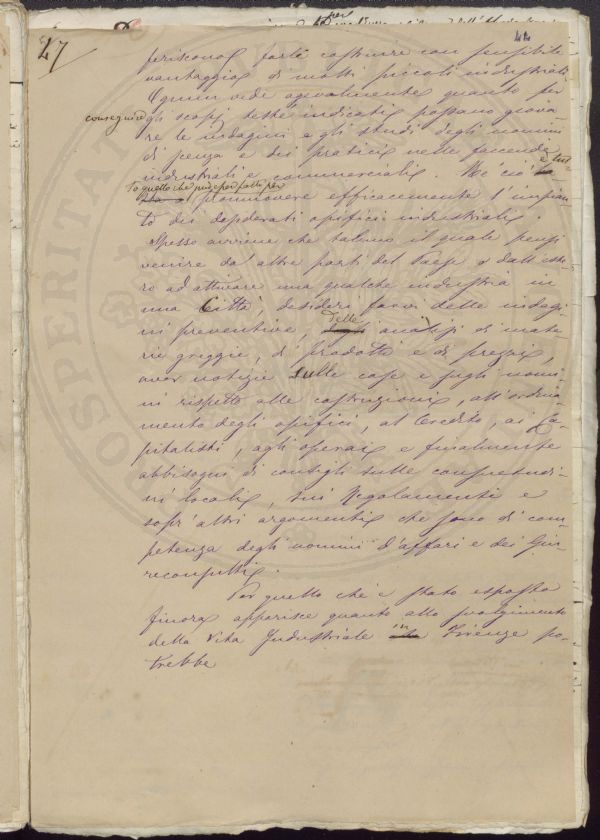 27
44
feriscono, farle costruire con sensibile
vantaggio di molti piccoli industriali.
Ognun vede agevolmente quanto per
conseguire gli scopj testè indicati possano giova-
re le indagini e gli studi degli uomini
di scienza e dei pratici nelle faccende
industriali e commerciali. Nè ciò è tut-
to quello che può esser fatto per
promuovere efficacemente l'impian-
to dei desiderati opifici industriali.
Spesso avviene che taluno il quale pensi
venire da altre parti del Paese o dall'este-
ro ad attivare una qualche industria in
una Città, desideri farvi delle indagi-
ni preventive, delle analisi di mate-
rie greggie, di prodotti e di prezzi,
aver notizie sulle cose e sugli uomi-
ni rispetto alle costruzioni, all'ordina-
mento degli opifici, al Credito, ai Ca-
pitalisti, agli operai e finalmente
abbisogni di consigli sulle consuetudi-
ni locali, sui Regolamenti e
sopr'altri argomenti che sono di com-
petenza degli uomini d'affari e dei Giu-
reconsulti.
Per quello ch'è stato esposto
finora apparisce quanto allo svolgimento
della vita Industriale in Firenze po-
trebbe